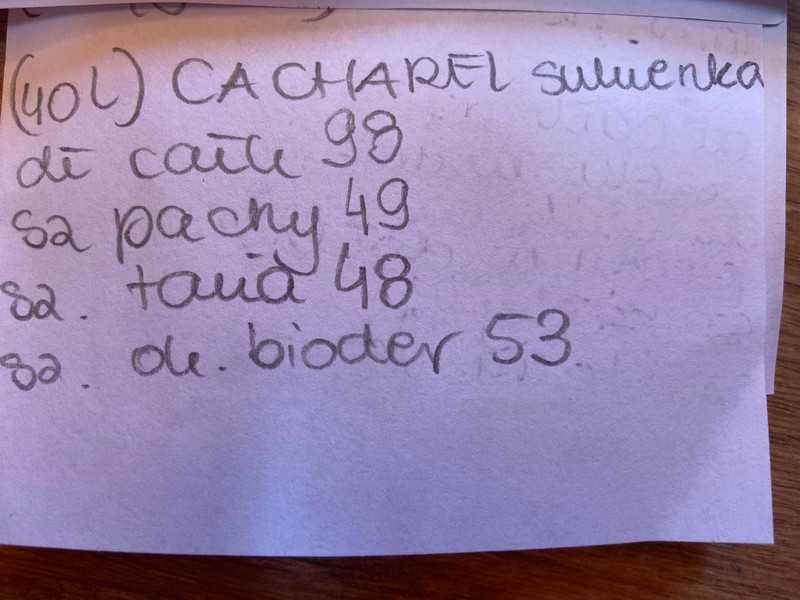 (40L) CACHAREL sukienka
dł całk 98
sz pachy 49
sz. talia 48
sz. ok. bioder 53